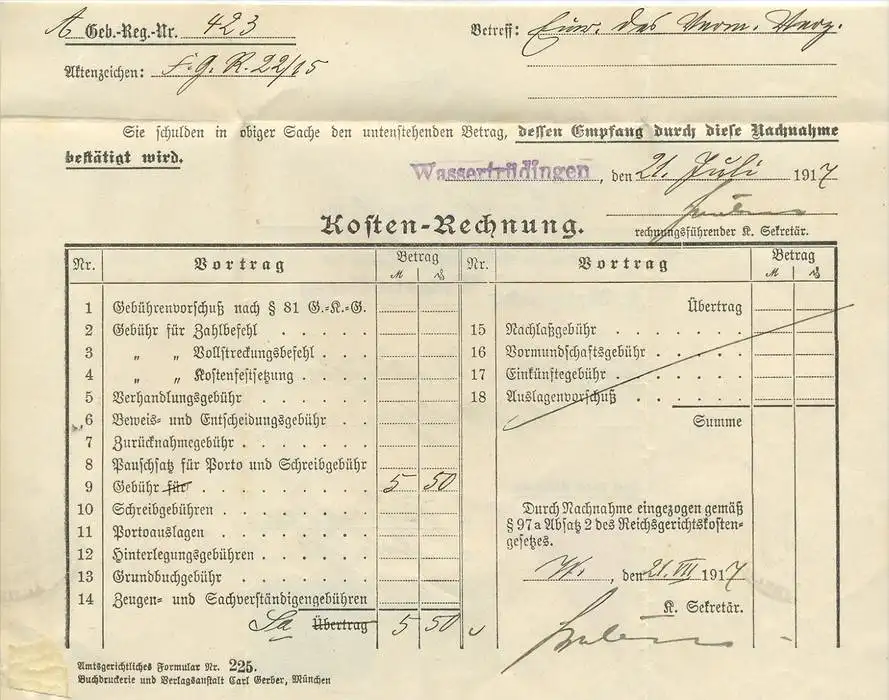 A Geb.-Reg.-Nr. 423
Betreff: des Verm. Verz.
Aktenzeichen: F. G. R. 22/15
Sie schulden in obiger Sache den untenstehenden Betrag, dessen Empfang durch diese Nachnahme
bestätigt wird.
Wassertrüdingen, den 21. Juli 1917
rechnungsführender K. Sekretär.
Kosten-Rechnung.
Nr. Vortrag Betrag
M ₰
1 Gebührenvorschuß nach § 81 G.-K.-G.
2 Gebühr für Zahlbefehl
3 „ „ Vollstreckungsbefehl
4 „ „ Kostenfestsetzung
5 Verhandlungsgebühr
6 Beweis- und Entscheidungsgebühr
7 Zurücknahmegebühr
8 Pauschsatz für Porto und Schreibgebühr
9 Gebühr für 5 50
10 Schreibgebühren
11 Portoauslagen
12 Hinterlegungsgebühren
13 Grundbuchgebühr
14 Zeugen- und Sachverständigengebühren
Sa Übertrag 5 50
Nr. Vortrag Betrag
M ₰
Übertrag
15 Nachlaßgebühr
16 Vormundschaftsgebühr
17 Einkünftegebühr
18 Auslagenvorschuß
Summe
Durch Nachnahme eingezogen gemäß
§ 97a Absatz 2 des Reichsgerichtskosten-
gesetzes.
W., den 21. VII 1917
K. Sekretär.
Amtsgerichtliches Formular Nr. 225.
Buchdruckerei und Verlagsanstalt Carl Gerber, München